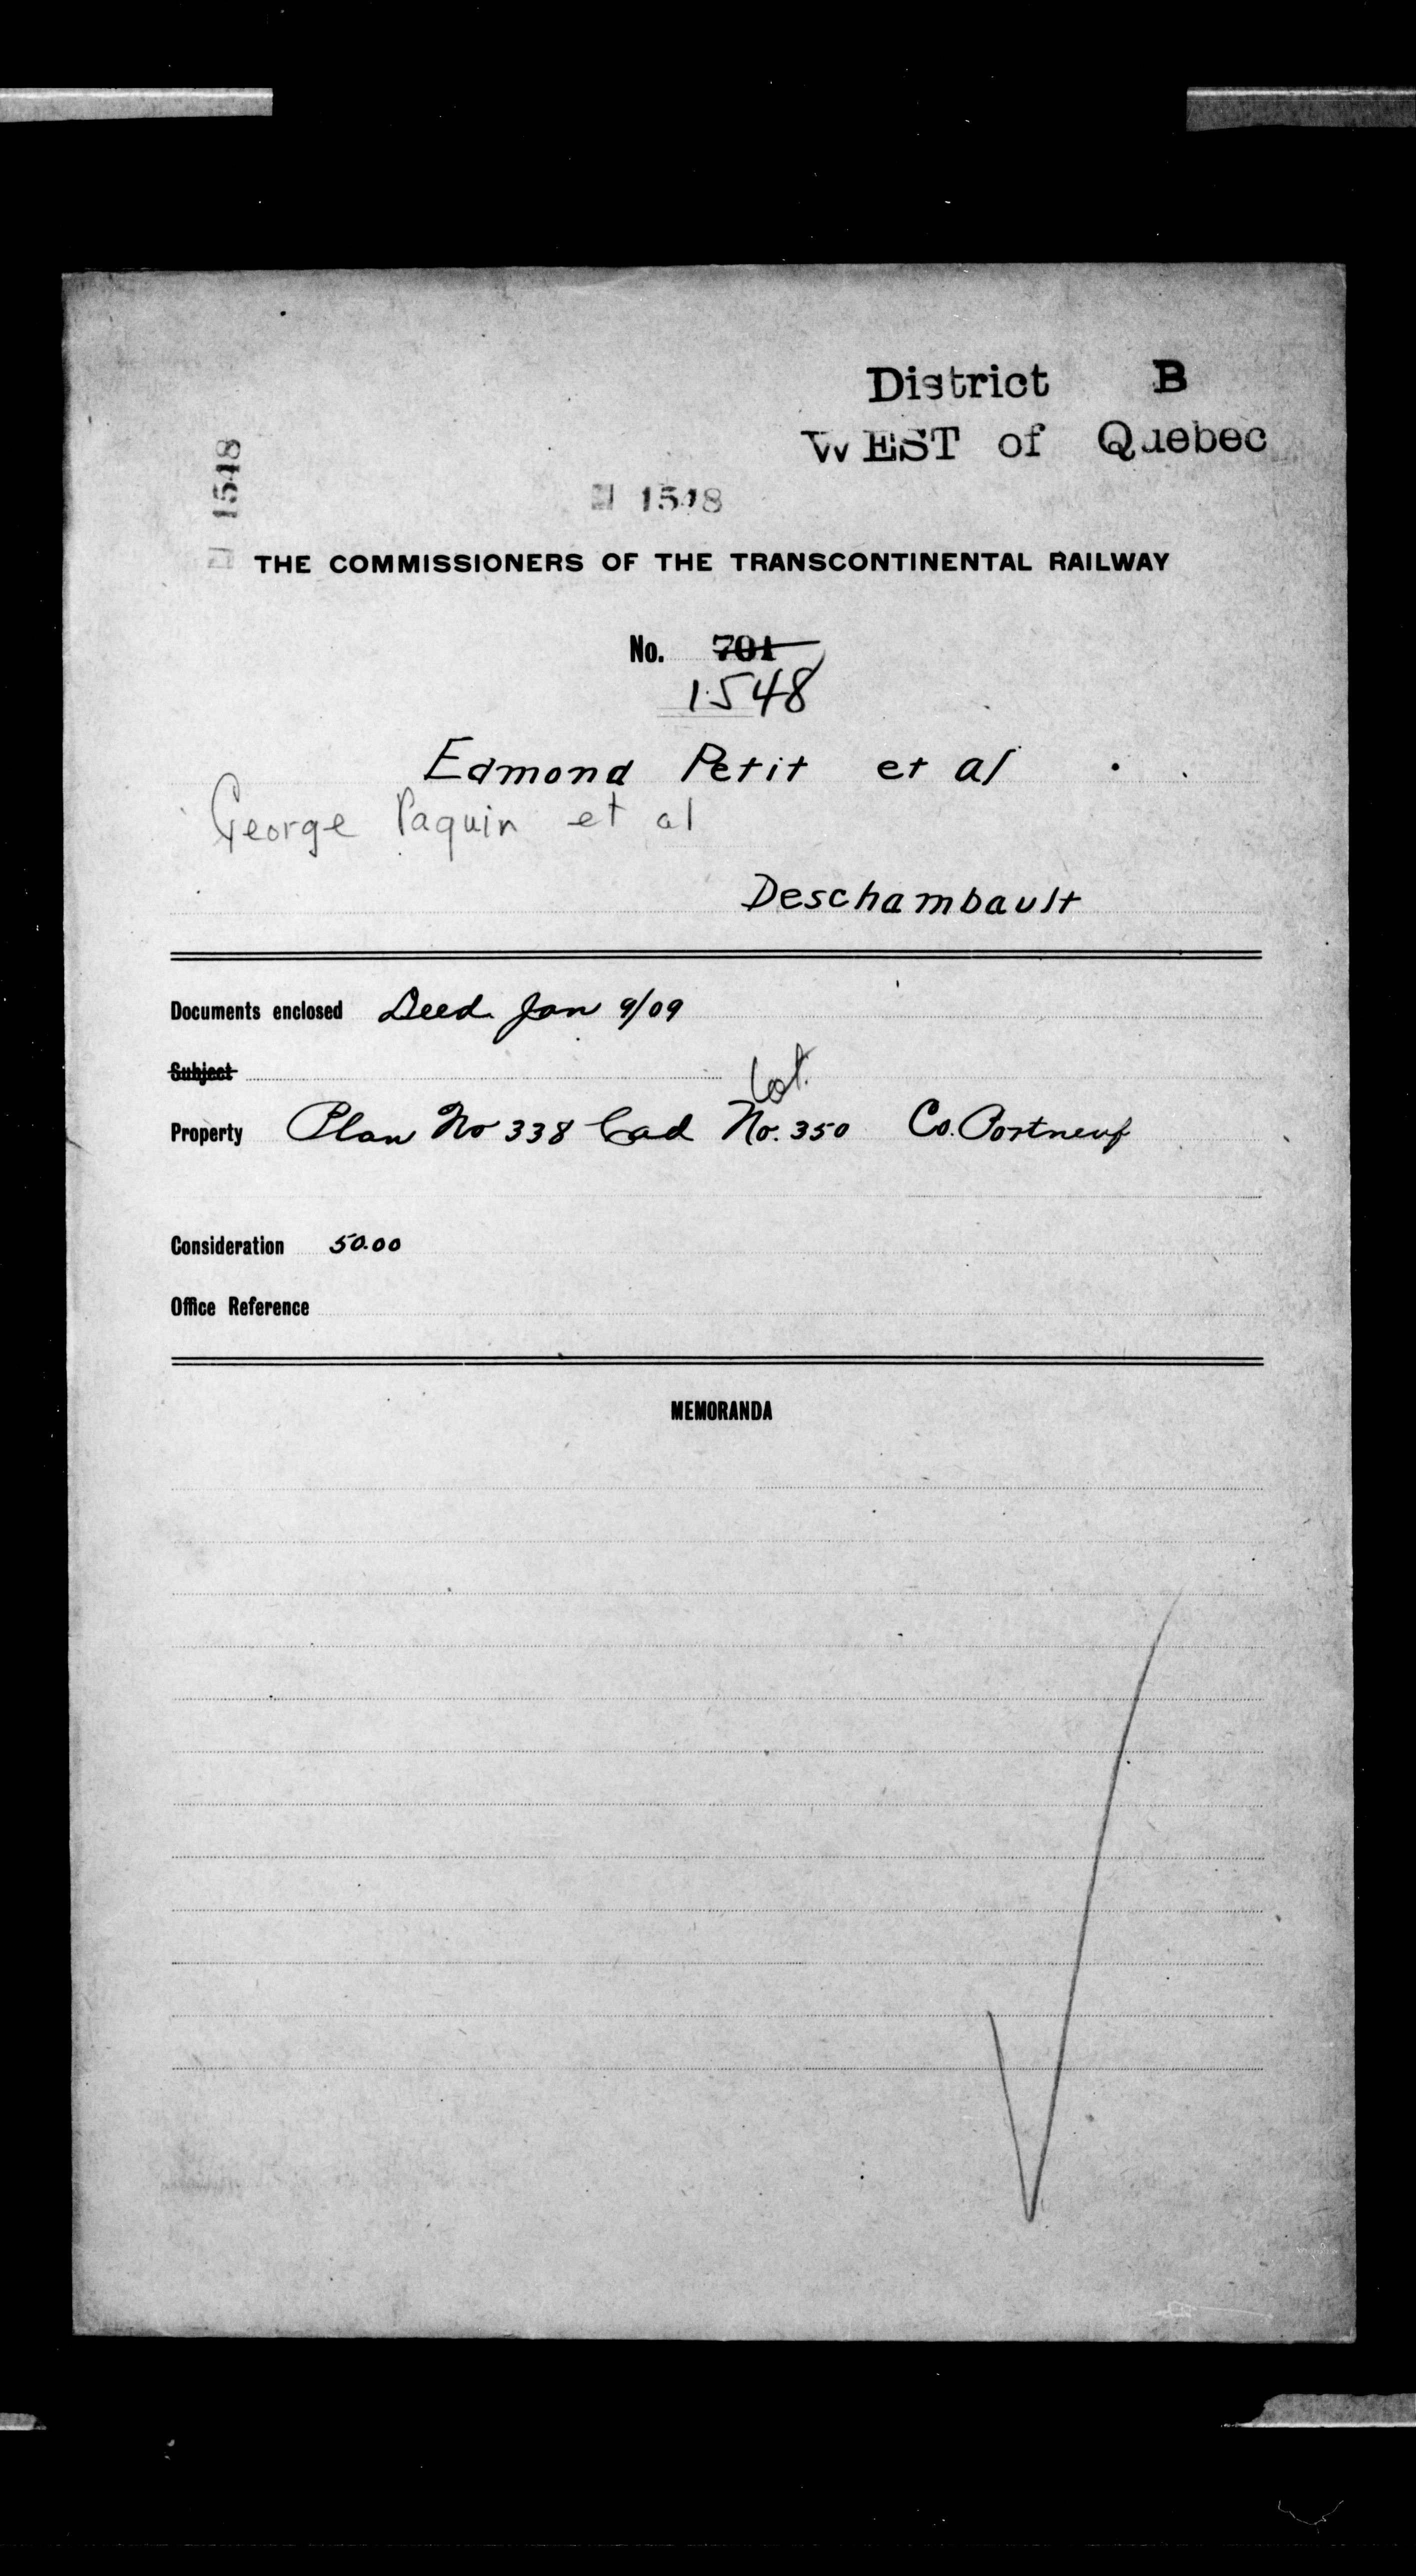 District B
WEST of Quebec
1548
1548
THE COMMISSIONERS OF THE TRANSCONTINENTAL RAILWAY
No. 701
1548
Edmond Petit et al
George Paquin et al
Deschambault
Documents enclosed Deed Jan 9/09
Subject
Lot
Property Plan No 338 Cad No. 350 Co. Portneuf
Consideration 50.00
Office Reference
MEMORANDA